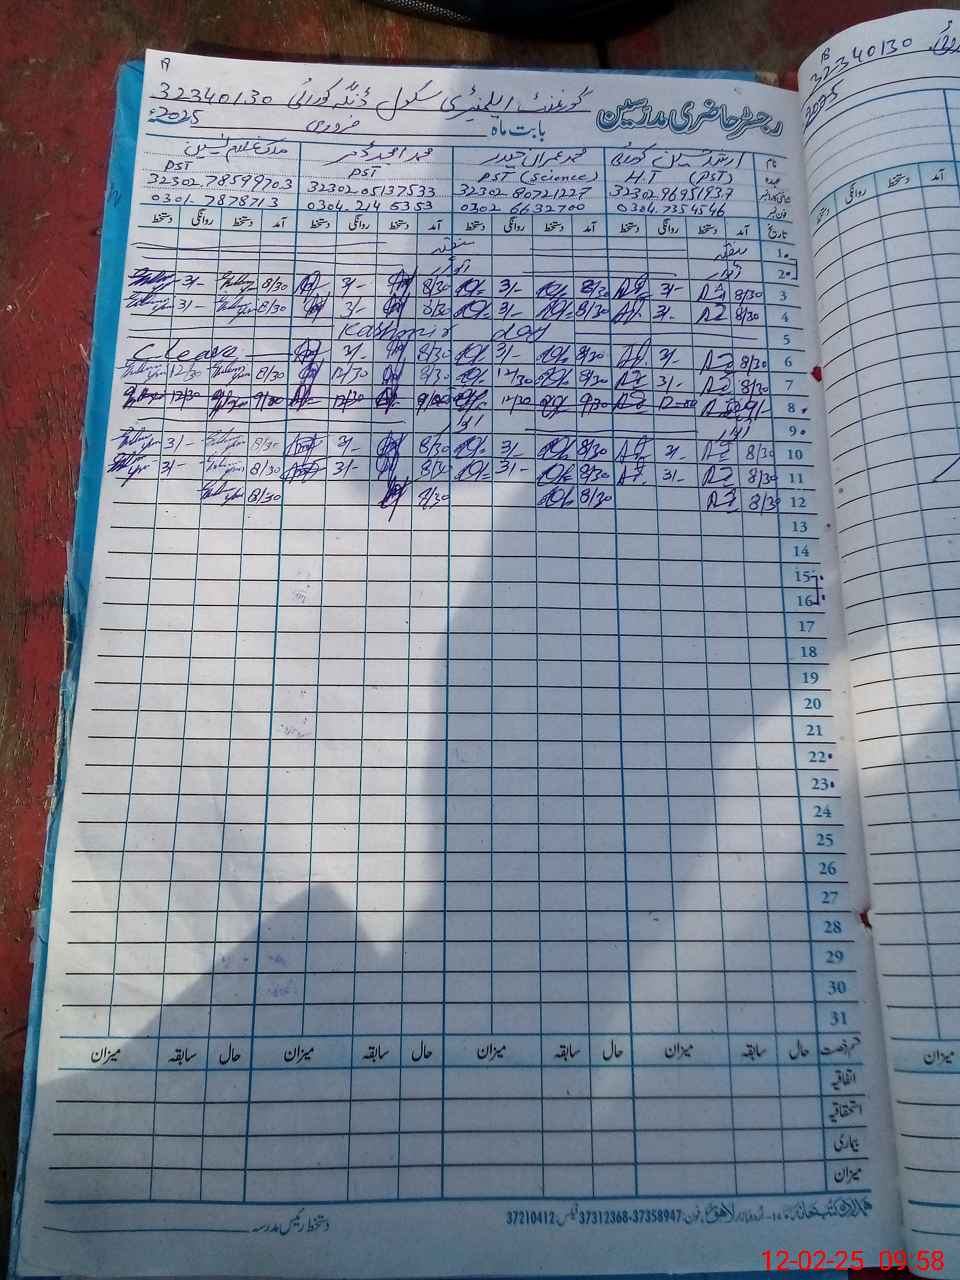 رجسٹر حاضری مدرسین
گورنمنٹ ایلیمنٹری سکول ڈنگہ کورائی 32340130
بابت ماہ فروری 2025ء
نام ارشد کورائی محمد عمران حیدر محمد امجد عمر غلام یٰسین
عہدہ H.T (PST) PST (Science) PST PST
32302 9695193.7 32302 80721227 32302 05137533 32302.78599703
فون نمبر 0304.7354546 0302 6632700 0304.214 5353 0301.7878713
تاریخ آمد دستخط روانگی دستخط آمد دستخط روانگی دستخط آمد دستخط روانگی دستخط آمد دستخط روانگی دستخط
1 ہفتہ ہفتہ
2 اتوار اتوار
3 8/30 3/- 8/30 3/- 8/30 3/- 8/30 3/-
4 8/30 3/- 8/30 3/- 8/30 3/- 8/30 3/-
5 Kashmir day
6 8/30 3/- 8/30 3/- 8/30 3/- C leave
7 8/30 3/- 8/30 12/30 8/30 12/30 8/30 12/30
8 9/- 9/30 12/30 9/30 12/30 9/30 12/30
9 اتوار اتوار
10 8/30 3/- 8/30 3/- 8/30 3/- 8/30 3/-
11 8/30 3/- 8/30 3/- 8/30 3/- 8/30 3/-
12 8/30 8/30 8/30 8/30
13
14
15
16
17
18
19
20
21
22
23
24
25
26
27
28
29
30
31
قسم رخصت حال سابقہ میزان حال سابقہ میزان حال سابقہ میزان حال سابقہ میزان
اتفاقیہ
استحقاقیہ
بیماری
میزان
اردو بازار لاہور فون: 37358947-37312368 فیکس: 37210412
دستخط رئیس مدرسہ
32340130
2025
آمد دستخط روانگی دستخط
میزان
12-02-25 09:58